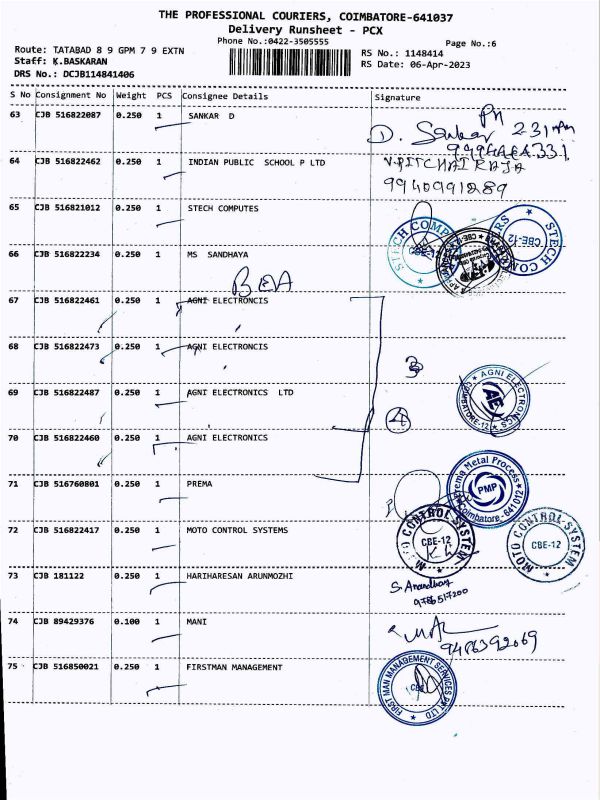 THE PROFESSIONAL COURIERS, COIMBATORE-641037
Delivery Runsheet - PCX
Phone No.:0422-3505555
Page No.:6
Route: TATABAD 8 9 GPM 7 9 EXTN
Staff: K.BASKARAN
DRS No.: DCJB114841406
RS No.: 1148414
RS Date: 06-Apr-2023
S No Consignment No Weight PCS Consignee Details Signature
63 CJB 516822087 0.250 1 SANKAR D
D. Sankar
64 CJB 516822462 0.250 1 INDIAN PUBLIC SCHOOL P LTD
9940991289
65 CJB 516821012 0.250 1 STECH COMPUTES
STECH COMP CBE-12
CBE-12 STECH COM
66 CJB 516822234 0.250 1 MS SANDHAYA
67 CJB 516822461 0.250 1 AGNI ELECTRONCIS
68 CJB 516822473 0.250 1 AGNI ELECTRONCIS
69 CJB 516822487 0.250 1 AGNI ELECTRONICS LTD
AGNI ELECTRONICS COIMBATORE-12 AE
4
70 CJB 516822460 0.250 1 AGNI ELECTRONICS
71 CJB 516760801 0.250 1 PREMA
Prema Metal Process Coimbatore-641012 PMP
72 CJB 516822417 0.250 1 MOTO CONTROL SYSTEMS
MOTO CONTROL SYSTEM CBE-12
MOTO CONTROL SYSTEM CBE-12
73 CJB 181122 0.250 1 HARIHARESAN ARUNMOZHI
9786517200
74 CJB 89429376 0.100 1 MANI
9486392069
75 CJB 516850021 0.250 1 FIRSTMAN MANAGEMENT
FIRST MAN MANAGEMENT SERVICES PVT LTD CBE